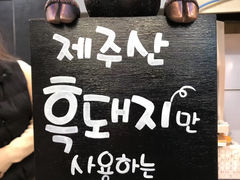 제주산
흑돼지만
사용하는